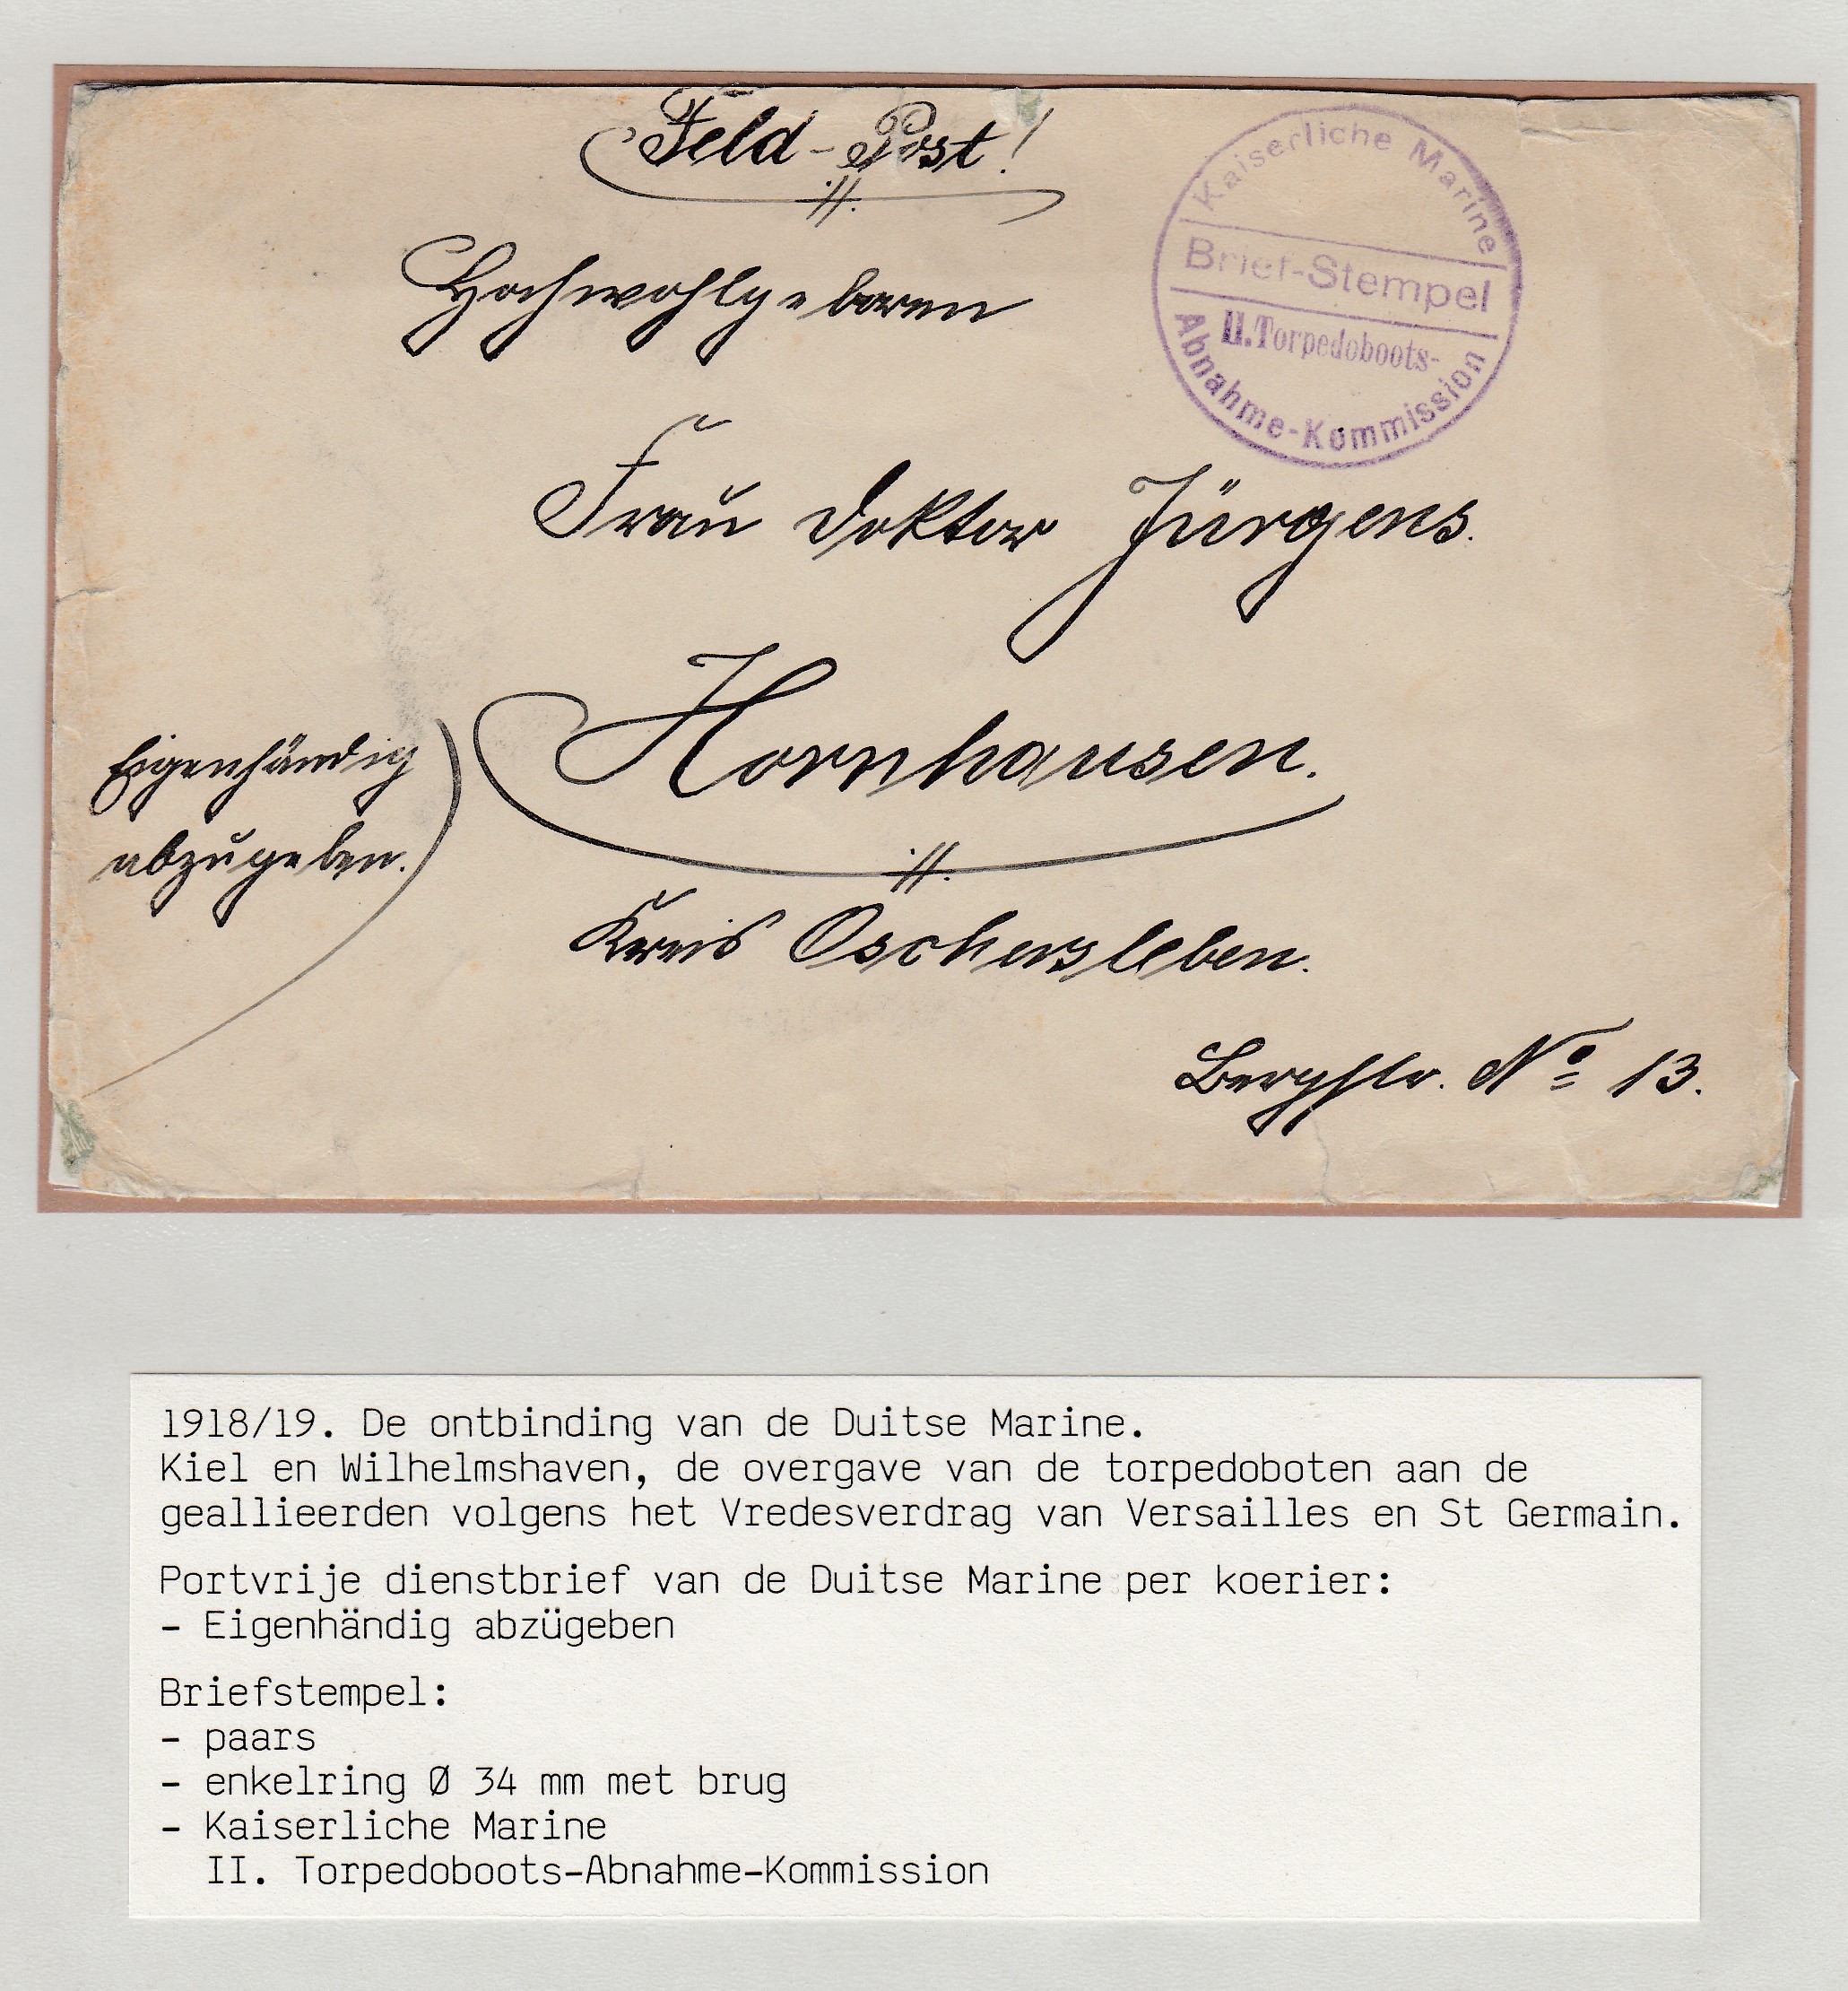 Feld-Post!
Kaiserliche Marine
Brief-Stempel
II. Torpedoboots-
Abnahme-Kommission
Hochwohlgeboren
Frau Doktor Jürgens.
Hornhausen.
Eigenhändig
abzugeben.
Kreis Oschersleben.
Bergstr. No 13.
1918/19. De ontbinding van de Duitse Marine.
Kiel en Wilhelmshaven, de overgave van de torpedoboten aan de
geallieerden volgens het Vredesverdrag van Versailles en St Germain.
Portvrije dienstbrief van de Duitse Marine per koerier:
- Eigenhändig abzügeben
Briefstempel:
- paars
- enkelring Ø 34 mm met brug
- Kaiserliche Marine
II. Torpedoboots-Abnahme-Kommission